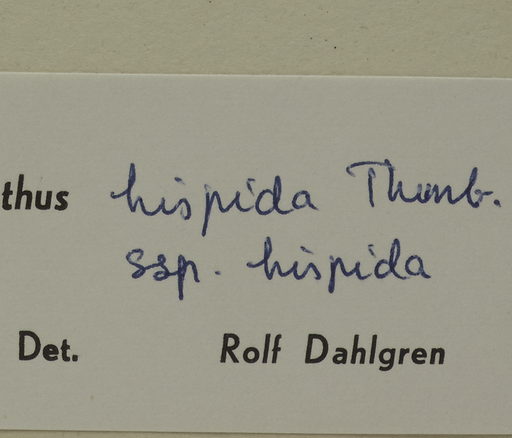 thus hispida Thunb.
ssp. hispida
Det. Rolf Dahlgren